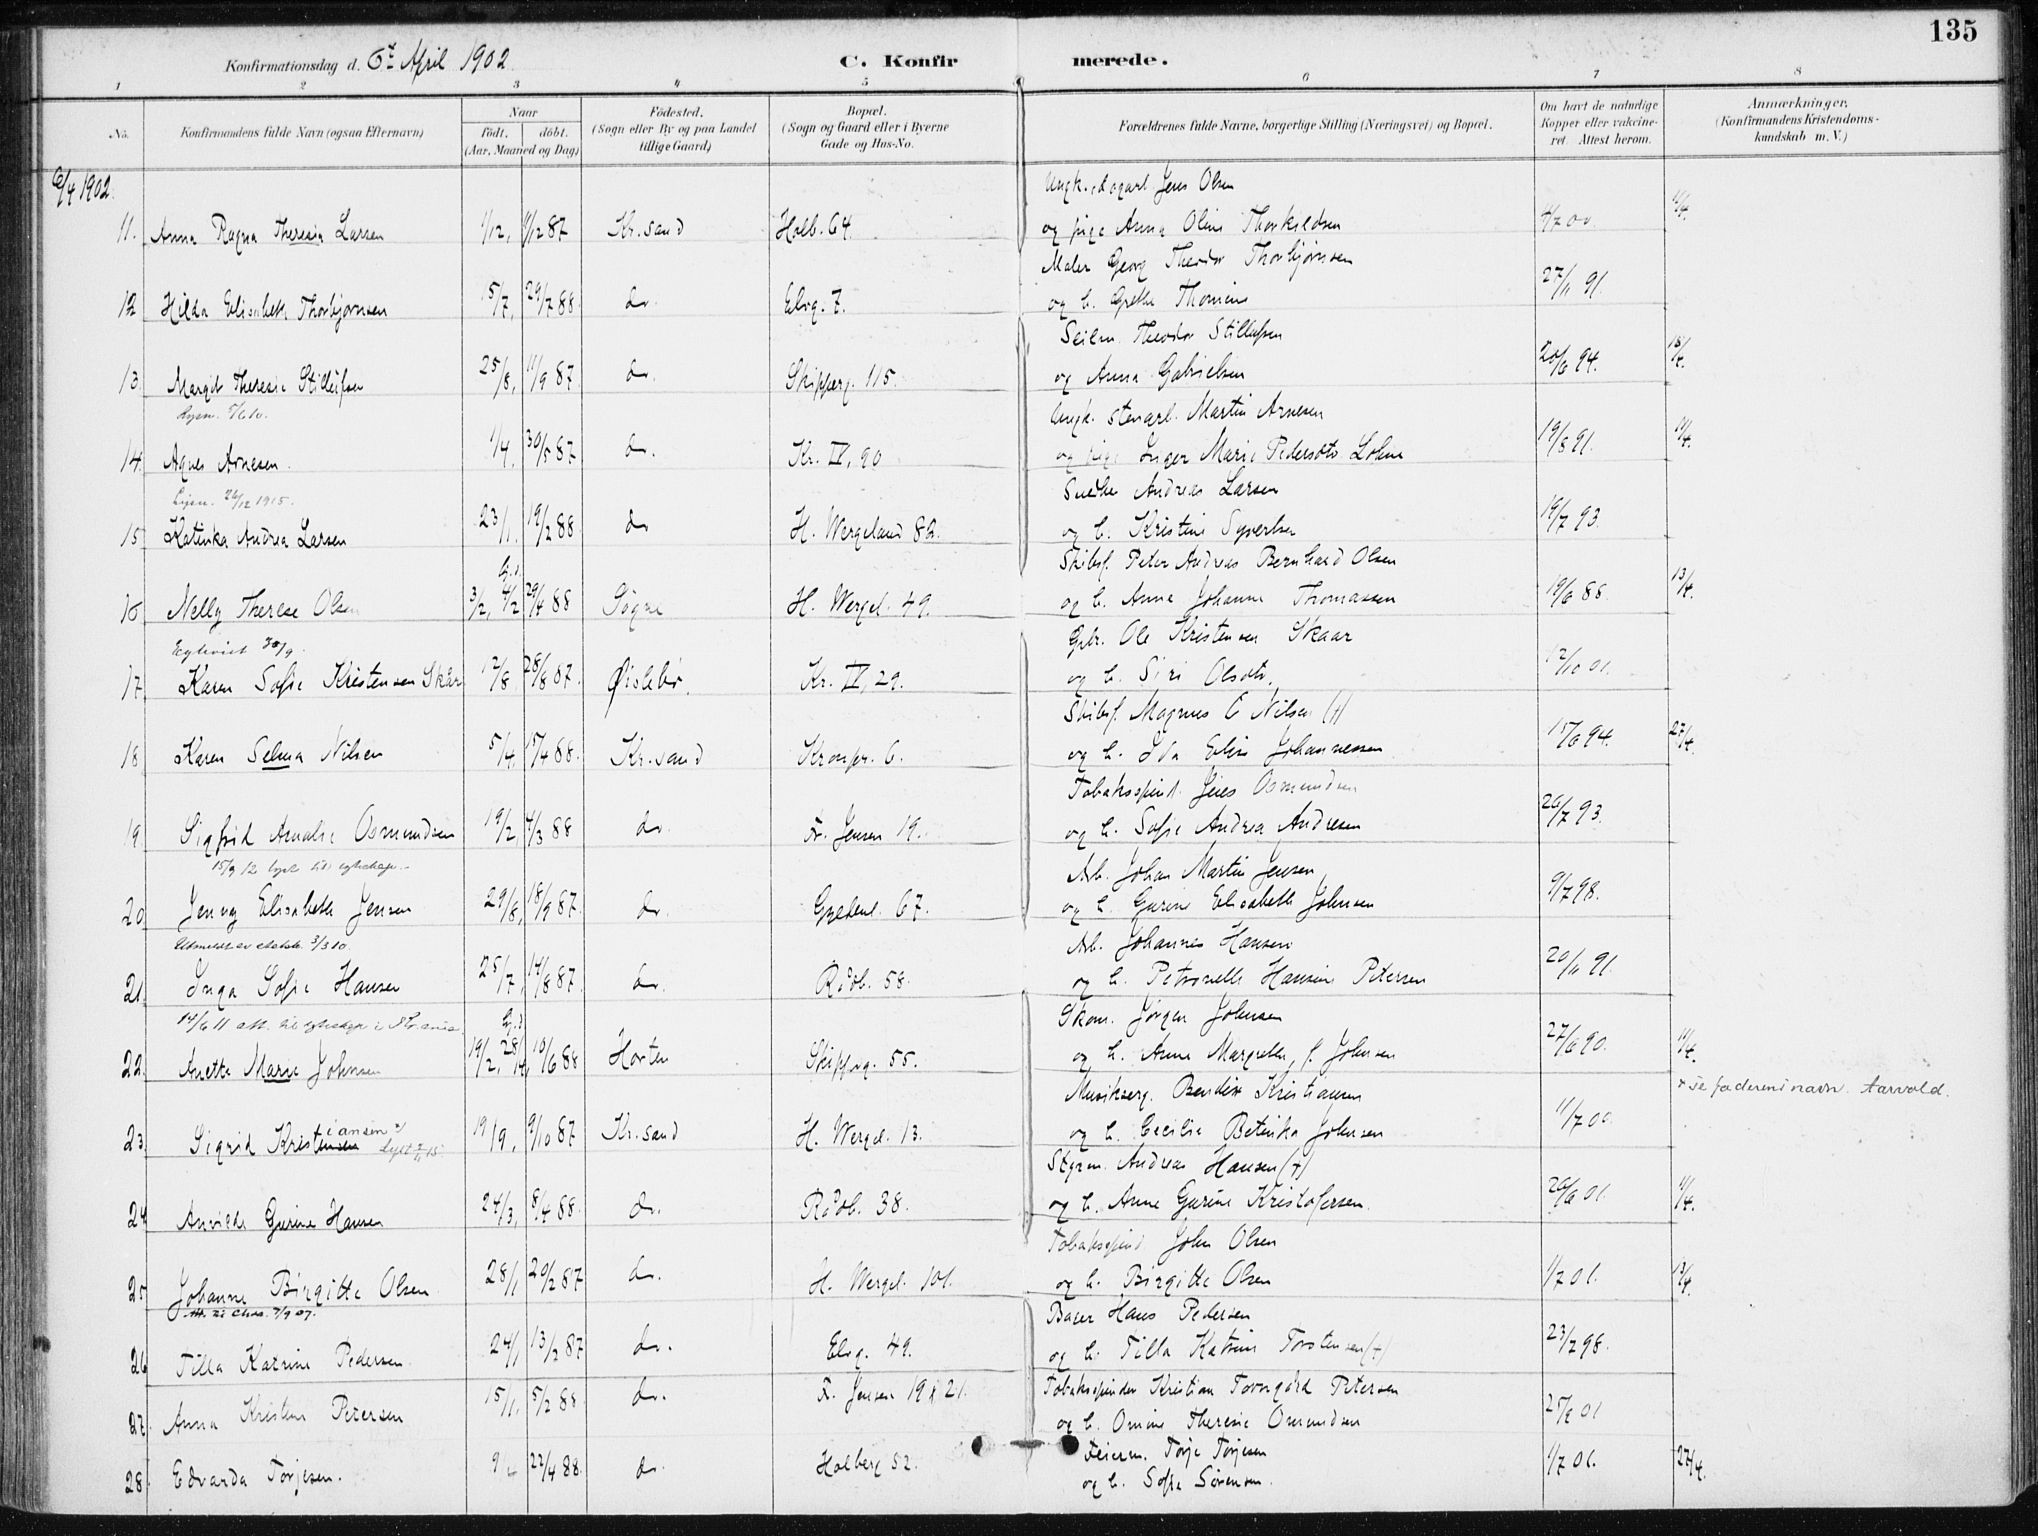 135
Konfirmationsdag d. 6t April 1902
C. Konfirmerede.
1 2 3 4 5 6 7 8
No.
Konfirmandens fulde Navn (ogsaa Efternavn)
Naar
født. døbt.
(Aar, Maaned og Dag)
Fødested.
(Sogn eller By og paa Landet
tillige Gaard)
Bopæl.
(Sogn og Gaard eller i Byerne
Gade og Hus-No.
Forældrenes fulde Navne, borgerlige Stilling (Næringsvei) og Bopæl.
Om havt de naturlige
Kopper eller vakcine-
ret. Attest herom.
Anmærkninger.
(Konfirmandens Kristendoms-
kundskab m. V.)
6/4 1902.
Ungk. Jens Olsen
11. Anna Ragna Theresia Larsen 1/12, 11/12 87 Kr.sand Holb. 64. og pige Anna Oline Thorkildsen 4/7 00
Maler Georg Theodor Thorbjørnsen
12 Hilda Elisabeth Thorbjørnsen 15/7, 29/7 88 do. Elvg. 7. og h. Grethe 27/11 91.
Seilm. Theodor Stillufsen
13. Margit Theresie Stillufsen 25/8, 11/9 87 do. Skipperg. 115. og Anna Gabrielsen 20/6 94.
Lysn.
Ungk. stenarb. Martin Arnesen
14. Agnes Arnesen. 1/4, 30/5 87. do. Kr. IV, 90 og pige Inger Marie Pedersdtr Lohne 19/8 91.
Lysn. 26/12 1915.
Andreas Larsen
15. Katinka Andrea Larsen 23/1, 19/2 88 do H. Wergeland 82. og h. Kristine Syvertsen 19/7 93.
Skibsf. Peter Andreas Bernhard Olsen
16 Nelly Therese Olsen 3/2, 4/2 29/4 88 Søgne H. Wergel. 49. og h. Anne Johanne Thomassen 19/6 88. 13/4.
Egteviet 30/9.
Gbr. Ole Kristensen Skaar
17. Karen Sofie Kristensen Skår 12/8 28/8 87. Øislebø. Kr. IV, 29. og h. Siri Olsdtr. 12/10 01.
Skibsf. Magnus E Nilsen (+)
18. Karen Selma Nilsen 5/4, 15/4 88. Kr.sand Kronpr. 6. og h. Ida Elise Johannessen 15/6 94. 27/4.
Tobaksspind. Jens Osmundsen
19. Sigfrid Amalie Osmundsen 19/2, 4/3 88 do. Fr. Jensen 19. og h. Sofie Andrea Andresen 26/7 93.
15/9 12 lyst til egteskap.
Arb. Johan Martin Jensen
20. Jenny Elisabeth Jensen 29/8, 18/9 87. do. Gyldenl. 67. og h. Gurine Elisabeth Johnsen 9/7 98.
Utmeldt av statsk. 3/3 10.
Arb. Johannes Hansen
21. Inga Sofie Hansen 25/7, 14/8 87. do. Rådb. 58. og h. Petronelle Hansine Petersen 20/11 91.
14/6 11 att. til egteskap i Kr.ania.
Skom. Jørgen Johnsen
22. Anette Marie Johnsen 19/2, 28/ 10/6 88 Horten Skipperg. 55. og h. Anne Margrethe, f. Johnsen 27/6 90. 11/4.
Musikserg. Bendix Kristiansen
+ se faderens navn. Aarvold.
23. Sigrid Kristensen iansen 19/9, 9/10 87 Kr.sand H. Wergel. 13. og h. Cecilie Betinka Johnsen 11/7 00.
Styrm. Andreas Hansen (+)
24 Anvilde Gurine Hansen 24/3, 8/4 88. do. Rådb. 38. og h. Anne Gurine Kristofersen. 20/6 01. 11/4.
Tobaksspind John Olsen
25 Johanne Birgitte Olsen. 28/1, 20/2 87 do. H. Wergel. 101. og h. Birgitte Olsen 1/7 01. 13/4.
Att. til Chra. 7/9 07.
Bager Hans Pedersen
26 Tilla Katrine Pedersen. 24/1 13/2 87 do. Elvg. 49. og h. Tilla Katrine Torstensen (+) 23/7 98.
Tobaksspinder Kristian Torngård Petersen
27. Anna Kristine Petersen 15/1, 5/2 88 do. Fr. Jensen 19 & 21. og h. Omine Theresie Osmundsen 25/6 01
Feierm. Torje Torjesen
28. Edvarda Torjesen. 22/4 88. do. Holberg 52. og h. Sofie Sørensen. 1/7 01. 27/4.